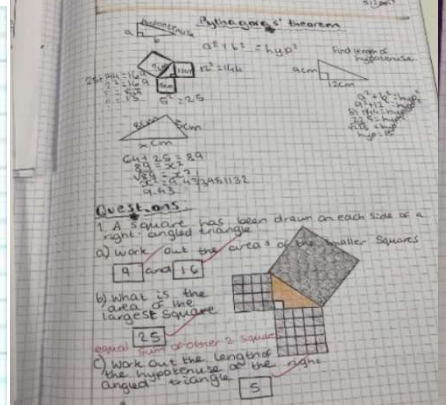 Pythagoras' theorem
hypotenuse
a
b
a² + b² = hyp²
12² = 144
5² = 25
Find length of hypotenuse
9cm
12cm
a² + b² = hyp²
9² + 12² = hyp²
hyp = 15
8cm
5cm
x cm
64 + 25 = 89
89 = x²
√89 = x
9.43
Questions
1. A square has been drawn on each side of a
right-angled triangle
a) Work out the areas of the smaller squares
9 and 16
b) What is the
area of the
largest square
25
equal sum of other 2 squares
c) Work out the length of
the hypotenuse of the right
angled triangle
5